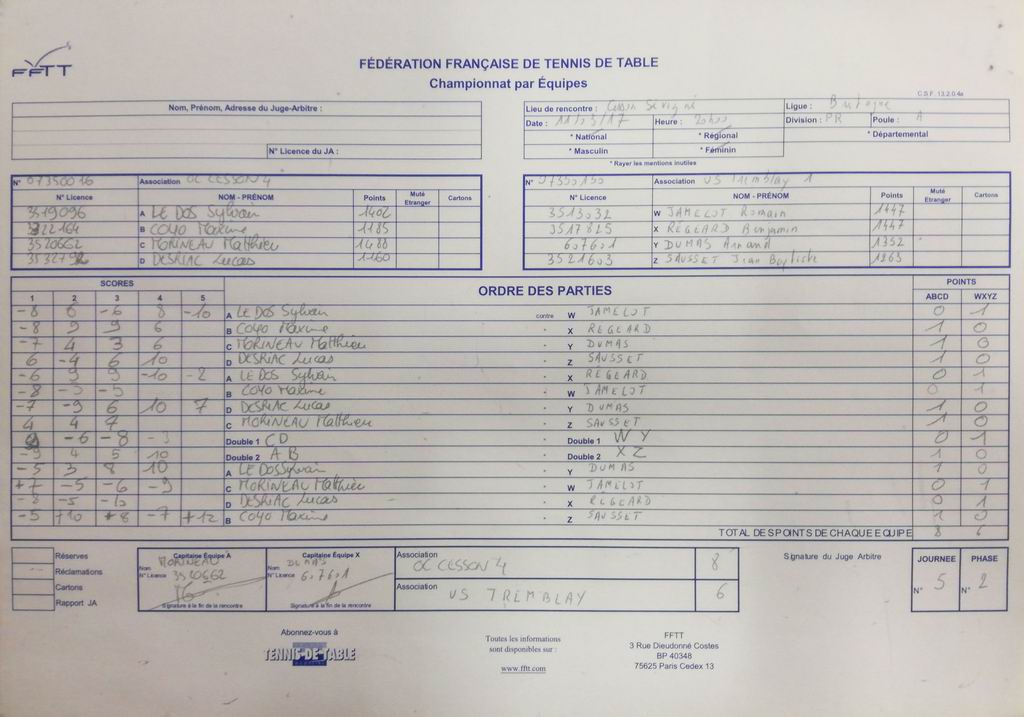 FFTT
FÉDÉRATION FRANÇAISE DE TENNIS DE TABLE
Championnat par Équipes
C.S.F. 13.2.0.4a
Nom, Prénom, Adresse du Juge-Arbitre :
N° Licence du JA :
Lieu de rencontre : Cesson Sévigné Ligue : Bretagne
Date : 11/03/17 Heure : 20h00 Division : PR Poule : A
* National * Régional * Départemental
* Masculin * Féminin
* Rayer les mentions inutiles
N° 07350016 Association OC CESSON 4
N° Licence NOM - PRÉNOM Points Muté Etranger Cartons
3519096 A LE DOS Sylvain 1402
3522164 B COYO Maxime 1185
3520662 C MORINEAU Matthieu 1488
D DESRIAC Lucas 1160
N° 07350150 Association US Tremblay 1
N° Licence NOM - PRÉNOM Points Muté Etranger Cartons
3513032 W JAMELOT Romain 1447
3517825 X REGEARD Benjamin 1447
607601 Y DUMAS Arnaud 1352
3521603 Z SAUSSET Jean Baptiste 1263
SCORES ORDRE DES PARTIES POINTS
1 2 3 4 5 ABCD WXYZ
-8 6 -6 8 -10 A LE DOS Sylvain contre W JAMELOT 0 1
-8 9 9 6 B COYO Maxime - X REGEARD 1 0
-7 4 3 6 C MORINEAU Matthieu - Y DUMAS 1 0
6 -4 6 10 D DESRIAC Lucas - Z SAUSSET 1 0
-6 9 9 -10 -2 A LE DOS Sylvain - X REGEARD 0 1
-8 -5 -5 B COYO Maxime - W JAMELOT 0 1
-7 -9 6 10 7 D DESRIAC Lucas - Y DUMAS 1 0
4 4 7 C MORINEAU Matthieu - Z SAUSSET 1 0
-6 -8 -9 Double 1 CD - Double 1 WY 0 1
-9 4 5 10 Double 2 AB - Double 2 XZ 1 0
-5 3 8 10 A LE DOS Sylvain - Y DUMAS 1 0
+7 -5 -6 -9 C MORINEAU Matthieu - W JAMELOT 0 1
-8 -5 D DESRIAC Lucas - X REGEARD 0 1
-5 +10 +8 -7 +12 B COYO Maxime - Z SAUSSET 1 0
TOTAL DES POINTS DE CHAQUE EQUIPE 8 6
Réserves
Réclamations
Cartons
Rapport JA
Capitaine Équipe A
Nom MORINEAU
N° Licence 3520662
Signature à la fin de la rencontre
Capitaine Équipe X
Nom DUMAS
N° Licence 607601
Signature à la fin de la rencontre
Association OC CESSON 4 8
Association US TREMBLAY 6
Signature du Juge Arbitre
JOURNEE PHASE
N° 5 N° 2
Abonnez-vous à
TENNIS-DE-TABLE
Toutes les informations
sont disponibles sur :
www.fftt.com
FFTT
3 Rue Dieudonné Costes
BP 40348
75625 Paris Cedex 13